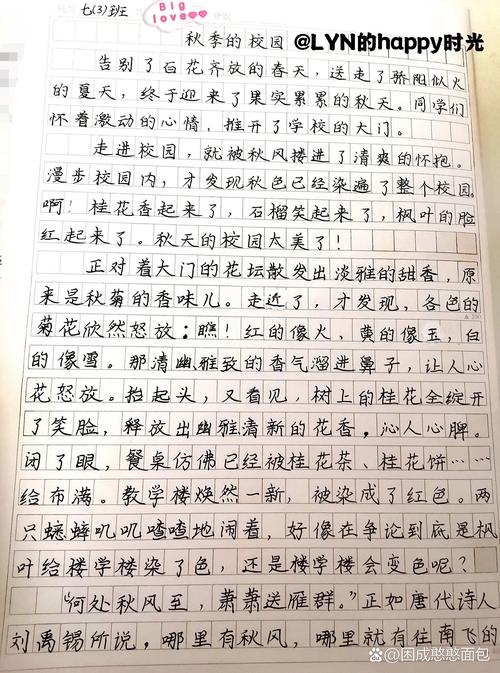 七(3)班
Big
love
秋季的校园
@LYN的happy时光
告别了百花齐放的春天，送走了骄阳似火
的夏天，终于迎来了果实累累的秋天。同学们
怀着激动的心情，推开了学校的大门。
走进校园，就被秋风搂进了清爽的怀抱。
漫步校园内，才发现秋色已经染遍了整个校园。
啊！桂花香起来了，石榴笑起来了，枫叶的脸
红起来了。秋天的校园太美了！
正对着大门的花坛散发出淡雅的甜香，原
来是秋菊的香味儿。走近了，才发现，各色的
菊花欣然怒放：瞧！红的像火，黄的像玉，白
的像雪。那清幽雅致的香气溜进鼻子，让人心
花怒放。抬起头，又看见，树上的桂花全绽开
了笑脸，释放出幽雅清新的花香，沁人心脾。
闭了眼，餐桌仿佛已经被桂花茶、桂花饼……
给布满。教学楼焕然一新，被染成了红色。两
只蟋蟀叽叽喳喳地闹着，好像在争论到底是枫
叶给楼学楼染了色，还是楼学楼会变色呢？
“何处秋风至，萧萧送雁群。”正如唐代诗人
刘禹锡所说，哪里有秋风，哪里就有往南飞的
@困成憨憨面包